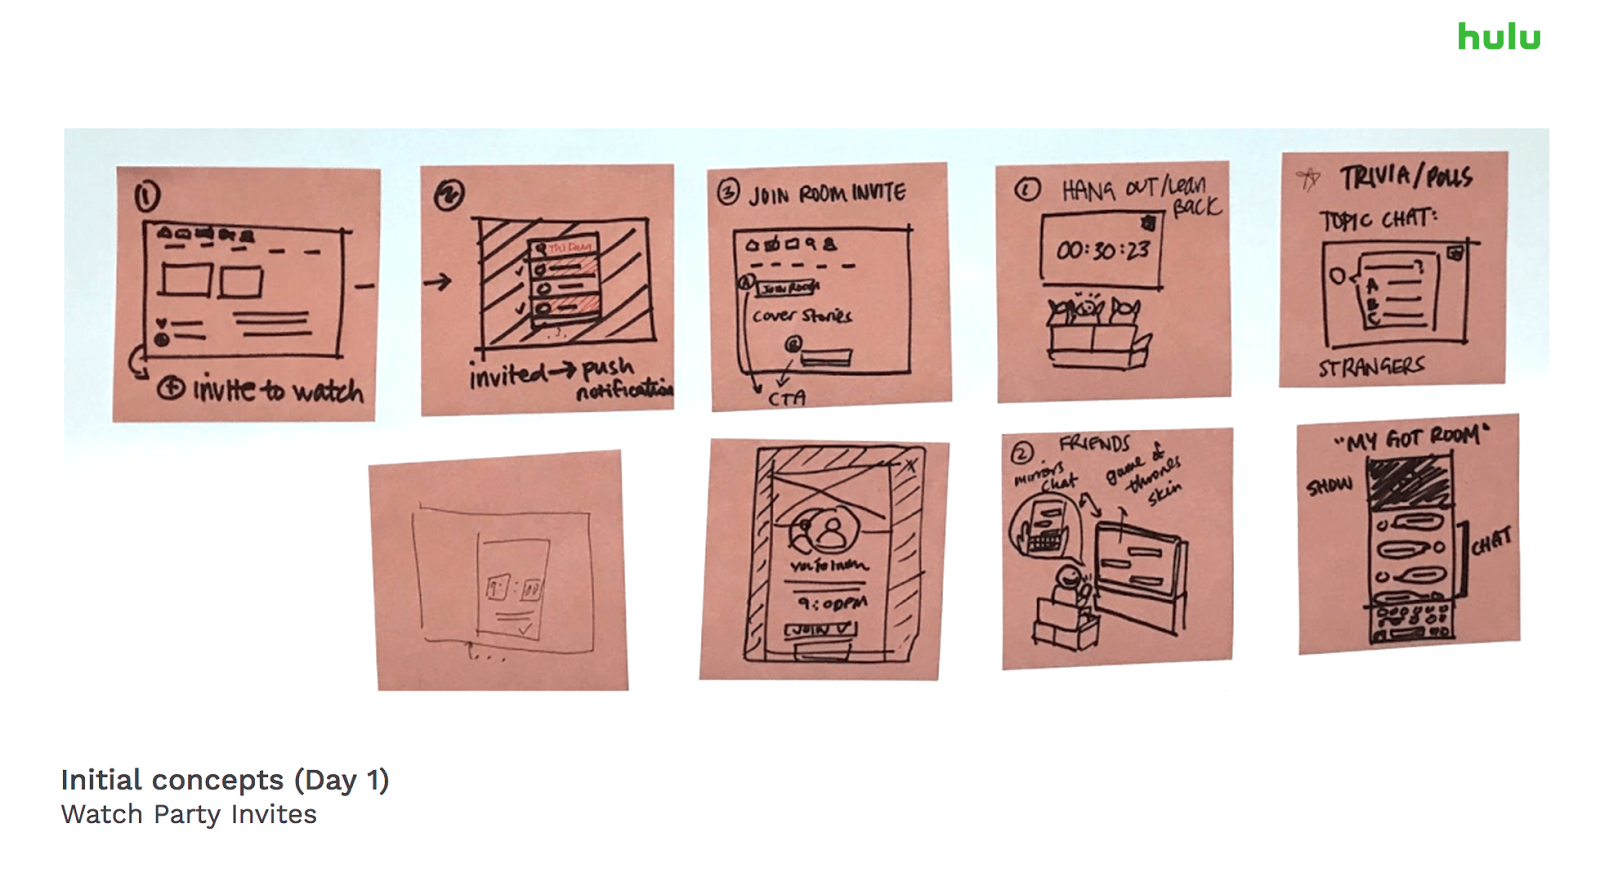 hulu
1
+ invite to watch
2
invited → push
notification
3 JOIN ROOM INVITE
A JOIN ROOM
Cover Stories
CTA
1 HANG OUT/Lean
Back
00:30:23
TRIVIA/POLLS
TOPIC CHAT:
A
B
C
STRANGERS
9: :00
9:00PM
JOIN ✓
2 FRIENDS
mirrors
chat
game of
thrones
skin
"MY GOT ROOM"
SHOW
CHAT
Initial concepts (Day 1)
Watch Party Invites